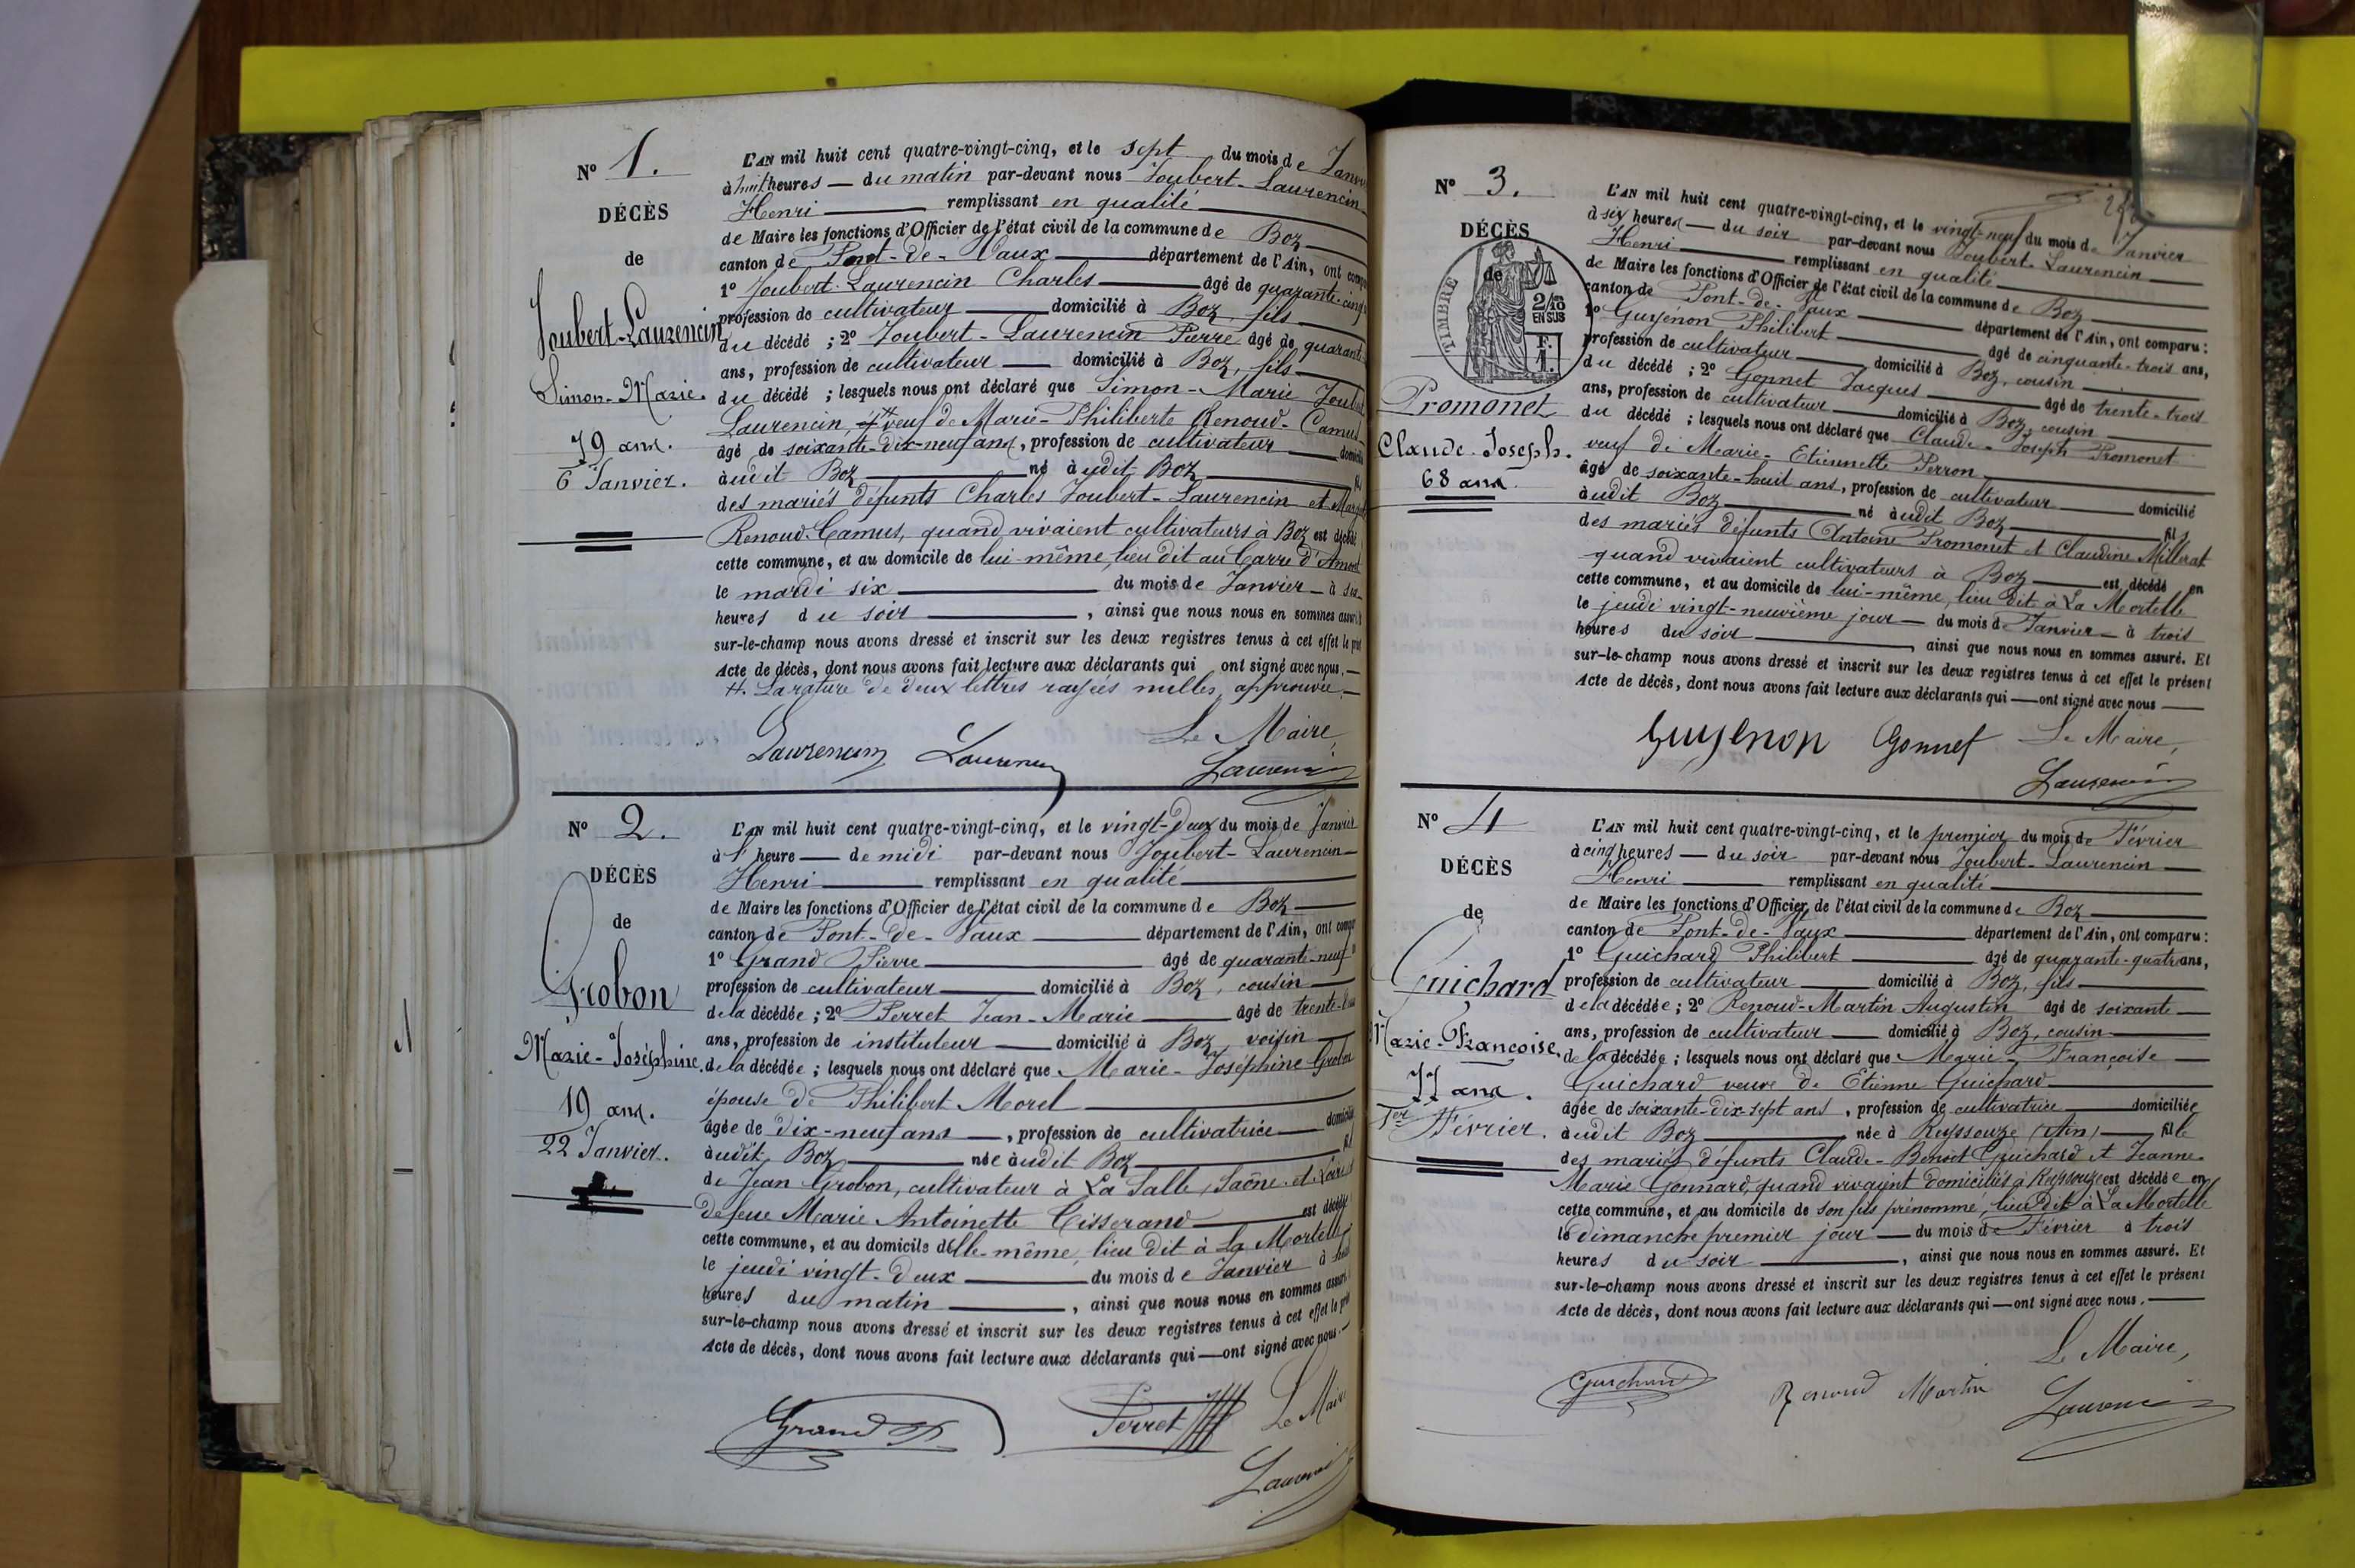 N° 1.
DÉCÈS
de
Joubert-Laurencin
Simon-Marie.
79 ans.
6 Janvier.
L'AN mil huit cent quatre-vingt-cinq, et le sept du mois de Janv
à huit heures — du matin par-devant nous Joubert-Laurencin
Henri — remplissant en qualité
de Maire les fonctions d'Officier de l'état civil de la commune de Boz
canton de Pont-de-Vaux — département de l'Ain, ont comp
1° Joubert-Laurencin Charles — âgé de quarante-cinq
profession de cultivateur — domicilié à Boz fils
du décédé ; 2° Joubert-Laurencin Pierre âgé de quarante
ans, profession de cultivateur — domicilié à Boz, fils
du décédé ; lesquels nous ont déclaré que Simon-Marie Joub
Laurencin, veuf de Marie-Philiberte Renoud-Camus
âgé de soixante-dix-neuf ans, profession de cultivateur — domicil
audit Boz — né audit Boz — fil
des mariés défunts Charles Joubert-Laurencin et Mar
Renoud-Camus, quand vivaient cultivateurs à Boz est décédé
cette commune, et au domicile de lui-même, lieu dit au Carre d'Amont
le mardi six — du mois de Janvier — à six
heures du soir — , ainsi que nous nous en sommes assuré
sur-le-champ nous avons dressé et inscrit sur les deux registres tenus à cet effet le pré
Acte de décès, dont nous avons fait lecture aux déclarants qui ont signé avec nous. —
H. La rature de deux lettres rayées nulles, approuvée. —
Laurencin Laurencin Le Maire,
Laurencin
N° 2.
DÉCÈS
de
Grobon
Marie-Joséphine.
19 ans.
22 Janvier.
L'AN mil huit cent quatre-vingt-cinq, et le vingt-deux du mois de Janvier
à 1 heure — de midi par-devant nous Joubert-Laurencin
Henri — remplissant en qualité
de Maire les fonctions d'Officier de l'état civil de la commune de Boz
canton de Pont-de-Vaux — département de l'Ain, ont comp
1° Grand Pierre — âgé de quarante-neuf
profession de cultivateur — domicilié à Boz, cousin
de la décédée ; 2° Perret Jean-Marie — âgé de trente
ans, profession de instituteur — domicilié à Boz, voisin
de la décédée ; lesquels nous ont déclaré que Marie-Joséphine Grobon
épouse de Philibert Morel
âgée de dix-neuf ans —, profession de cultivatrice — domicil
audit Boz — née audit Boz — fil
de Jean Grobon, cultivateur à La Salle, Saône-et-Loire
de feue Marie Antoinette Tisserand — est décédé
cette commune, et au domicile d'elle-même, lieu dit à La Mortelle
le jeudi vingt-deux — du mois de Janvier à
heures du matin — , ainsi que nous nous en sommes assuré
sur-le-champ nous avons dressé et inscrit sur les deux registres tenus à cet effet le pré
Acte de décès, dont nous avons fait lecture aux déclarants qui — ont signé avec nous. —
Grand P Perret Le Maire
Laurencin
N° 3.
DÉCÈS
de
TIMBRE
2/10
EN SUS
F.
1.
Promonet
Claude-Joseph.
68 ans.
L'AN mil huit cent quatre-vingt-cinq, et le vingt-neuf du mois de Janvier
à six heures — du soir par-devant nous Joubert-Laurencin
Henri — remplissant en qualité
de Maire les fonctions d'Officier de l'état civil de la commune de Boz
canton de Pont-de-Vaux — département de l'Ain, ont comparu :
1° Guyenon Philibert — âgé de cinquante-trois ans,
profession de cultivateur — domicilié à Boz, cousin
du décédé ; 2° Gonnet Jacques — âgé de trente-trois
ans, profession de cultivateur — domicilié à Boz, cousin
du décédé ; lesquels nous ont déclaré que Claude-Joseph Promonet
veuf de Marie-Etiennette Perron
âgé de soixante-huit ans, profession de cultivateur — domicilié
audit Boz — né audit Boz — fils
des mariés défunts Antoine Promonet et Claudine Millerat
quand vivaient cultivateurs à Boz — est décédé en
cette commune, et au domicile de lui-même, lieu dit à La Mortelle
le jeudi vingt-neuvième jour — du mois de Janvier — à trois
heures du soir — , ainsi que nous nous en sommes assuré. Et
sur-le-champ nous avons dressé et inscrit sur les deux registres tenus à cet effet le présent
Acte de décès, dont nous avons fait lecture aux déclarants qui — ont signé avec nous —
Guyenon Gonnet Le Maire,
Laurencin
N° 4
DÉCÈS
de
Guichard
Marie-Françoise.
77 ans.
1er Février.
L'AN mil huit cent quatre-vingt-cinq, et le premier du mois de Février
à cinq heures — du soir par-devant nous Joubert-Laurencin
Henri — remplissant en qualité
de Maire les fonctions d'Officier de l'état civil de la commune de Boz
canton de Pont-de-Vaux — département de l'Ain, ont comparu :
1° Guichard Philibert — âgé de quarante-quatre ans,
profession de cultivateur — domicilié à Boz, fils
de la décédée ; 2° Renoud-Martin Augustin âgé de soixante
ans, profession de cultivateur — domicilié à Boz, cousin
de la décédée ; lesquels nous ont déclaré que Marie-Françoise
Guichard veuve de Etienne Guichard
âgée de soixante-dix-sept ans, profession de cultivatrice — domiciliée
audit Boz — née à Reyssouze (Ain) — fille
des mariés défunts Claude-Benoît Guichard et Jeanne
Marie Gonnard, quand vivaient domiciliés à Reyssouze est décédée en
cette commune, et au domicile de son fils prénommé, lieu dit à La Mortelle
le dimanche premier jour — du mois de Février à trois
heures du soir — , ainsi que nous nous en sommes assuré. Et
sur-le-champ nous avons dressé et inscrit sur les deux registres tenus à cet effet le présent
Acte de décès, dont nous avons fait lecture aux déclarants qui — ont signé avec nous. —
Le Maire,
Guichard Renoud Martin Laurencin